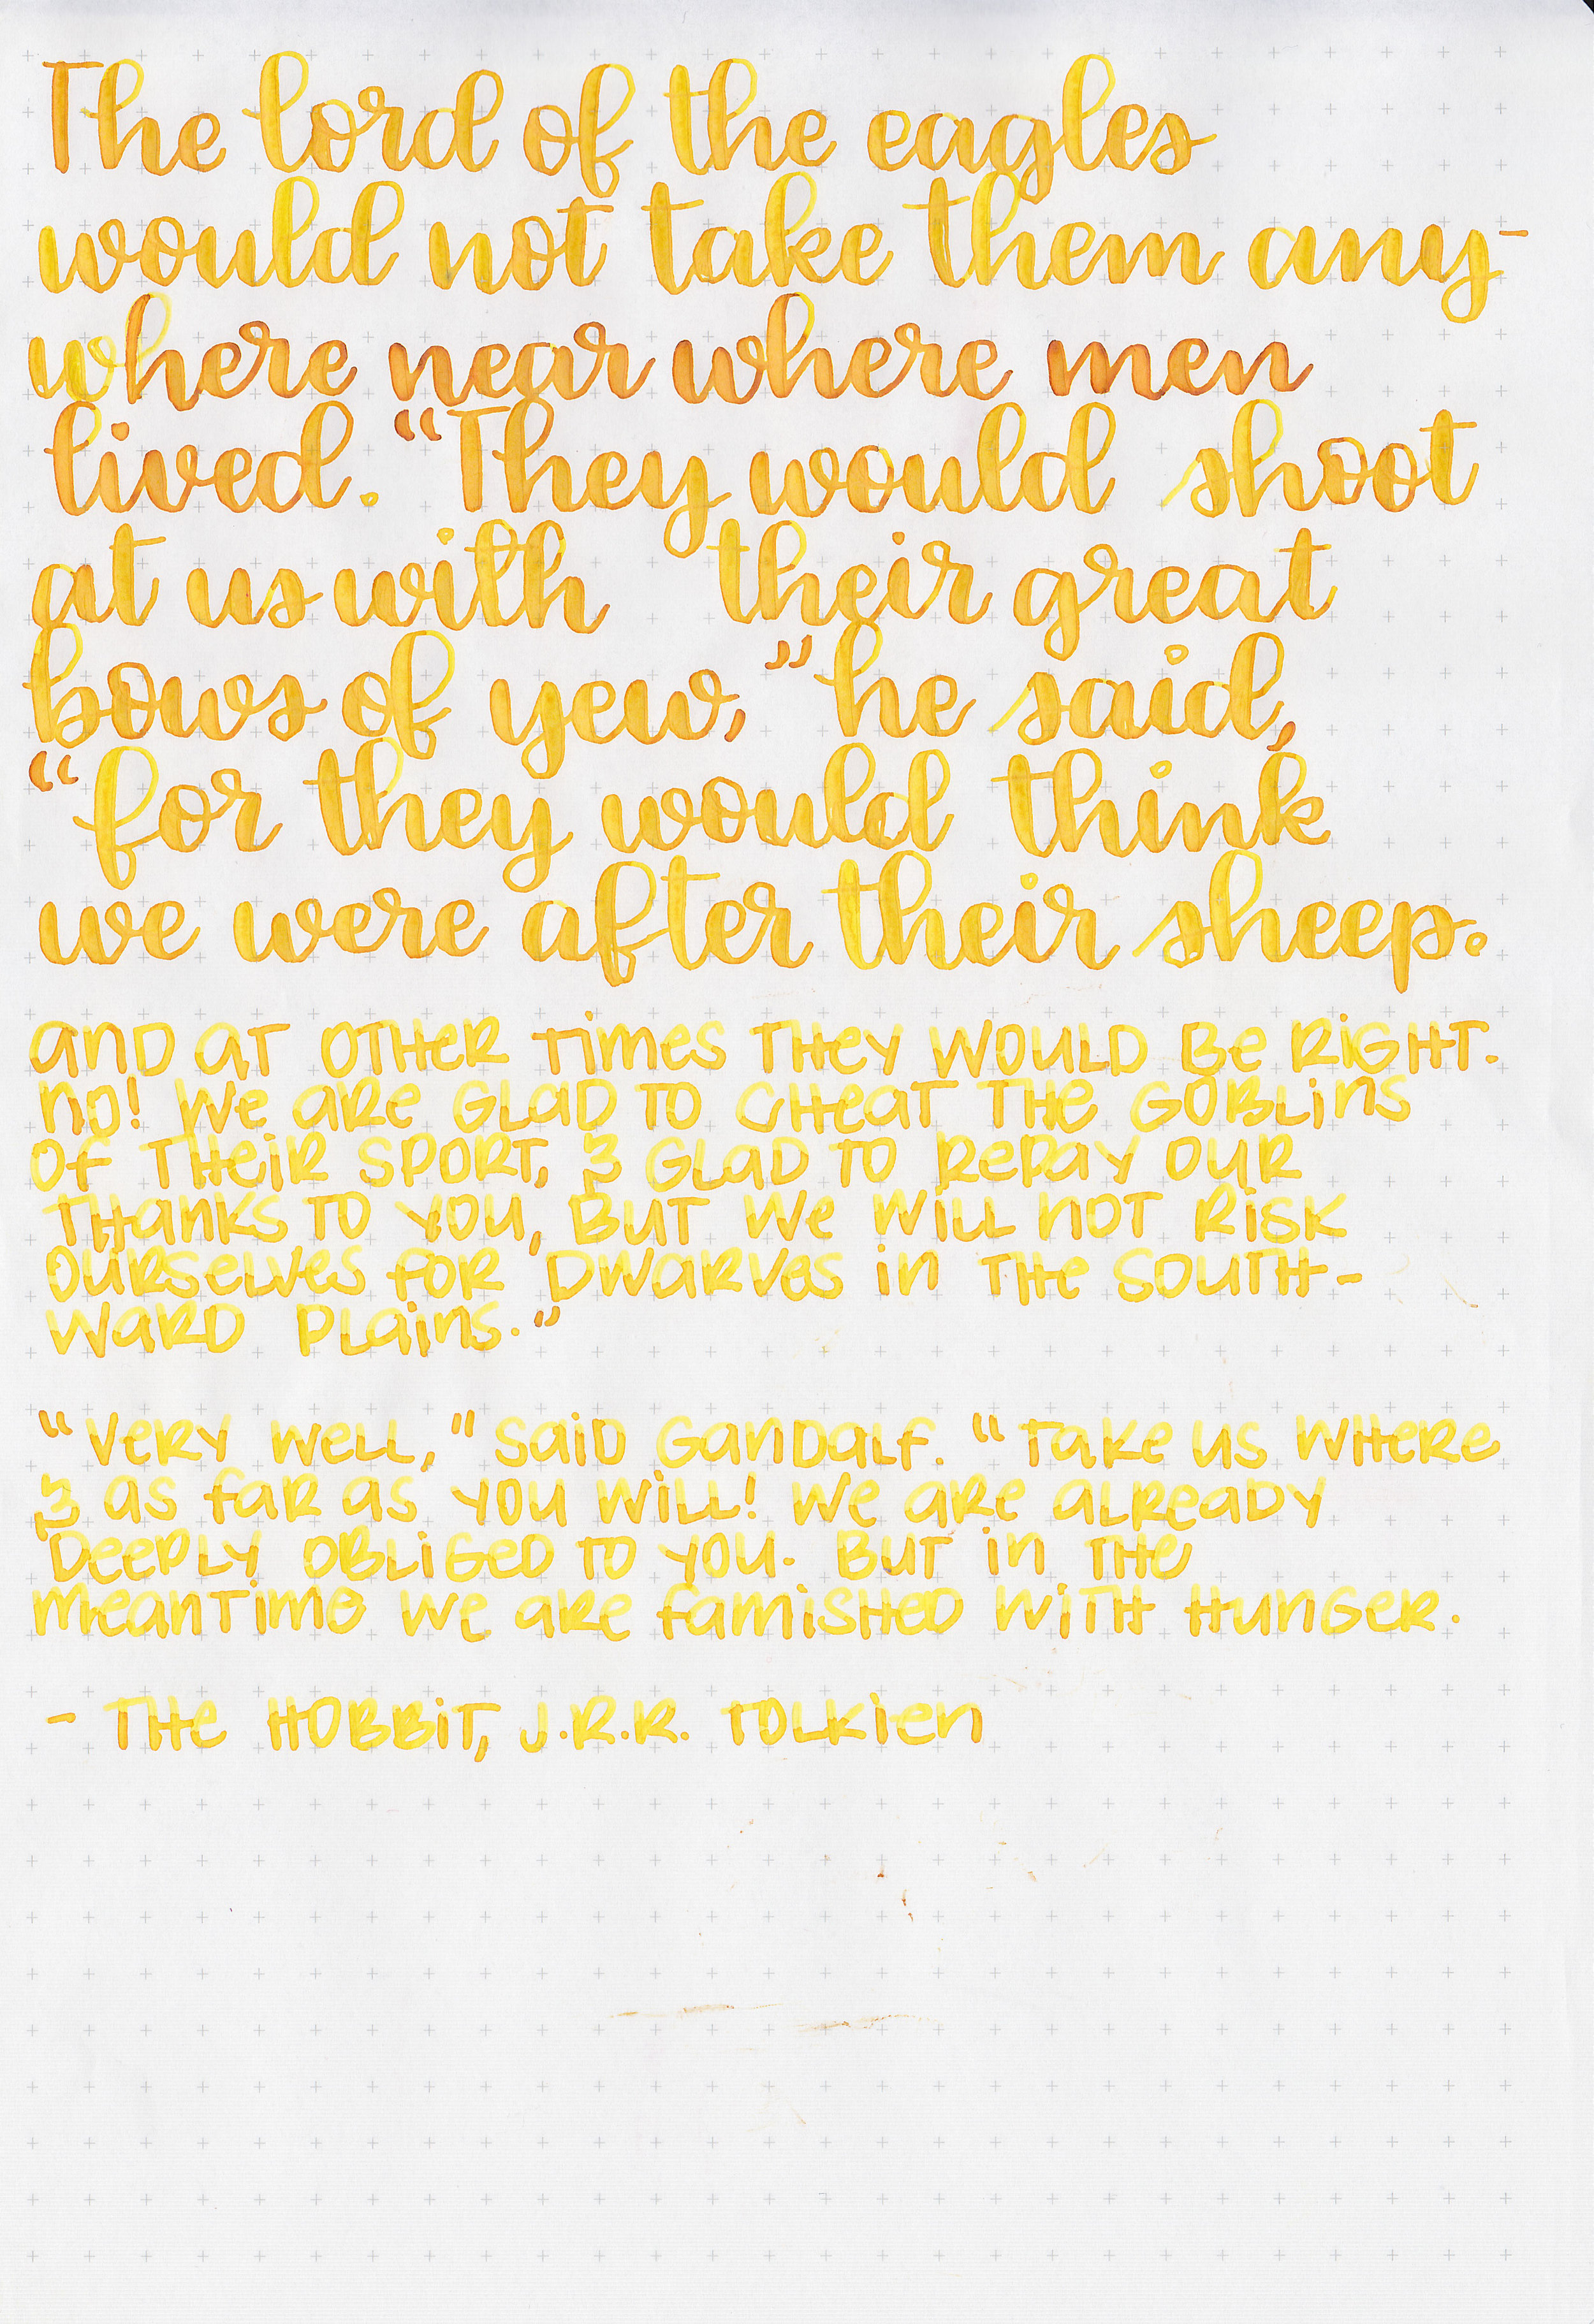 The lord of the eagles
would not take them any-
where near where men
lived. “They would shoot
at us with their great
bows of yew,” he said,
“for they would think
we were after their sheep.
and at other times they would be right.
no! We are glad to cheat the goblins
of their sport, & glad to repay our
thanks to you, but we will not risk
ourselves for dwarves in the south-
ward plains.”
“Very well,” said Gandalf. “Take us where
& as far as you will! We are already
deeply obliged to you. But in the
meantime we are famished with hunger.
- The Hobbit, J.R.R. Tolkien